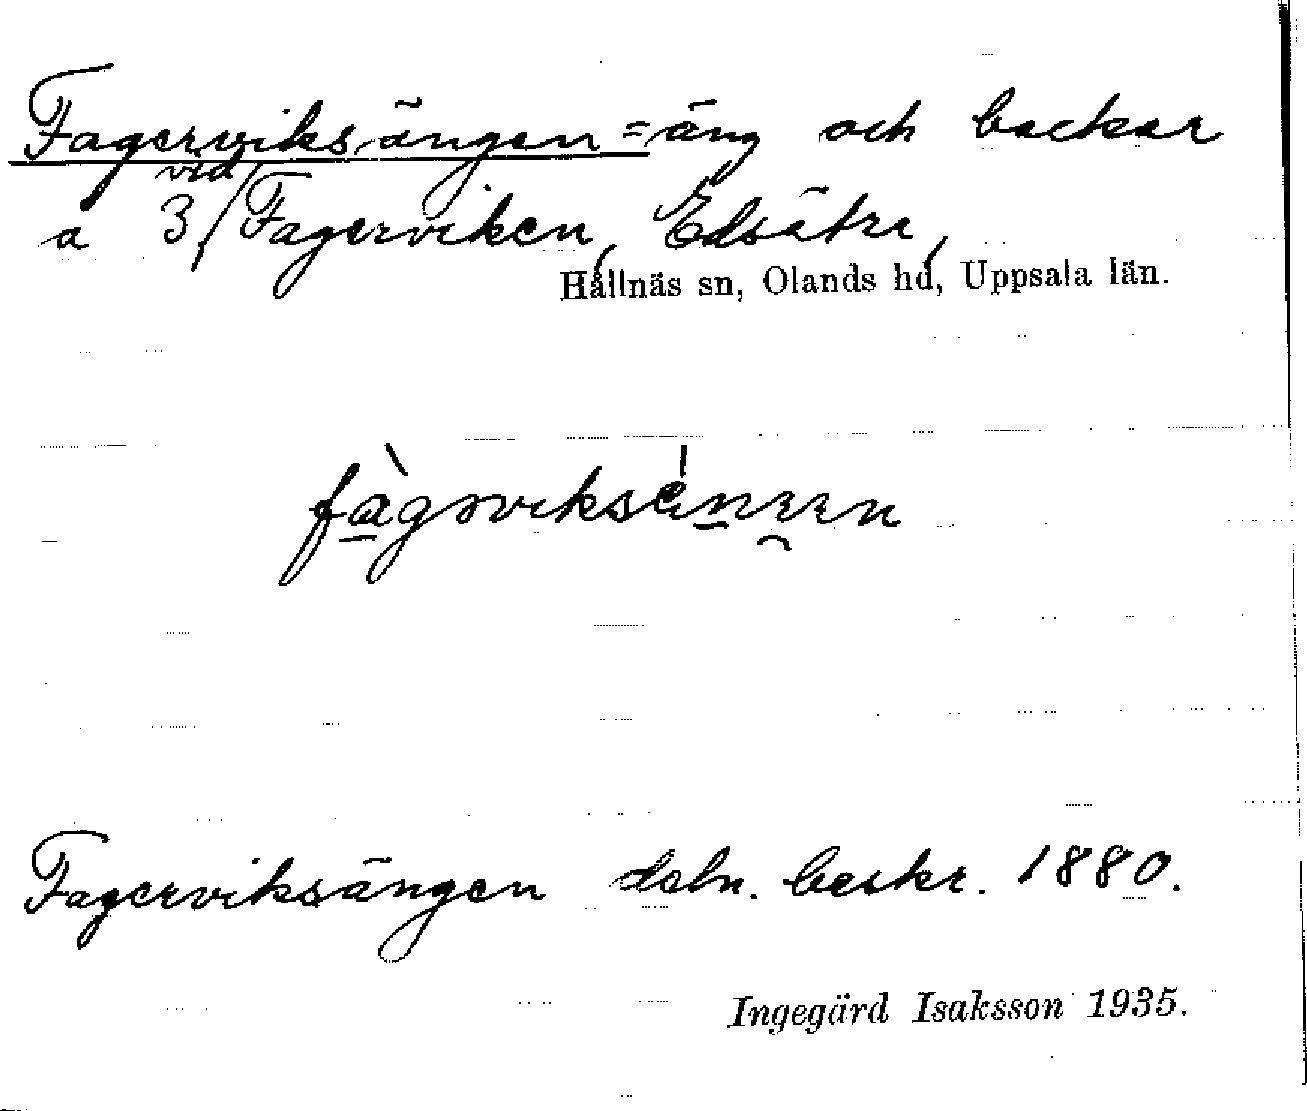 Fagerviksängen = äng och backar
a 3, vid Fagerviken, Edsätra,
Hållnäs sn, Olands hd, Uppsala län.
Fagerviksängen dsbn. beskr. 1880.
Ingegärd Isaksson 1935.